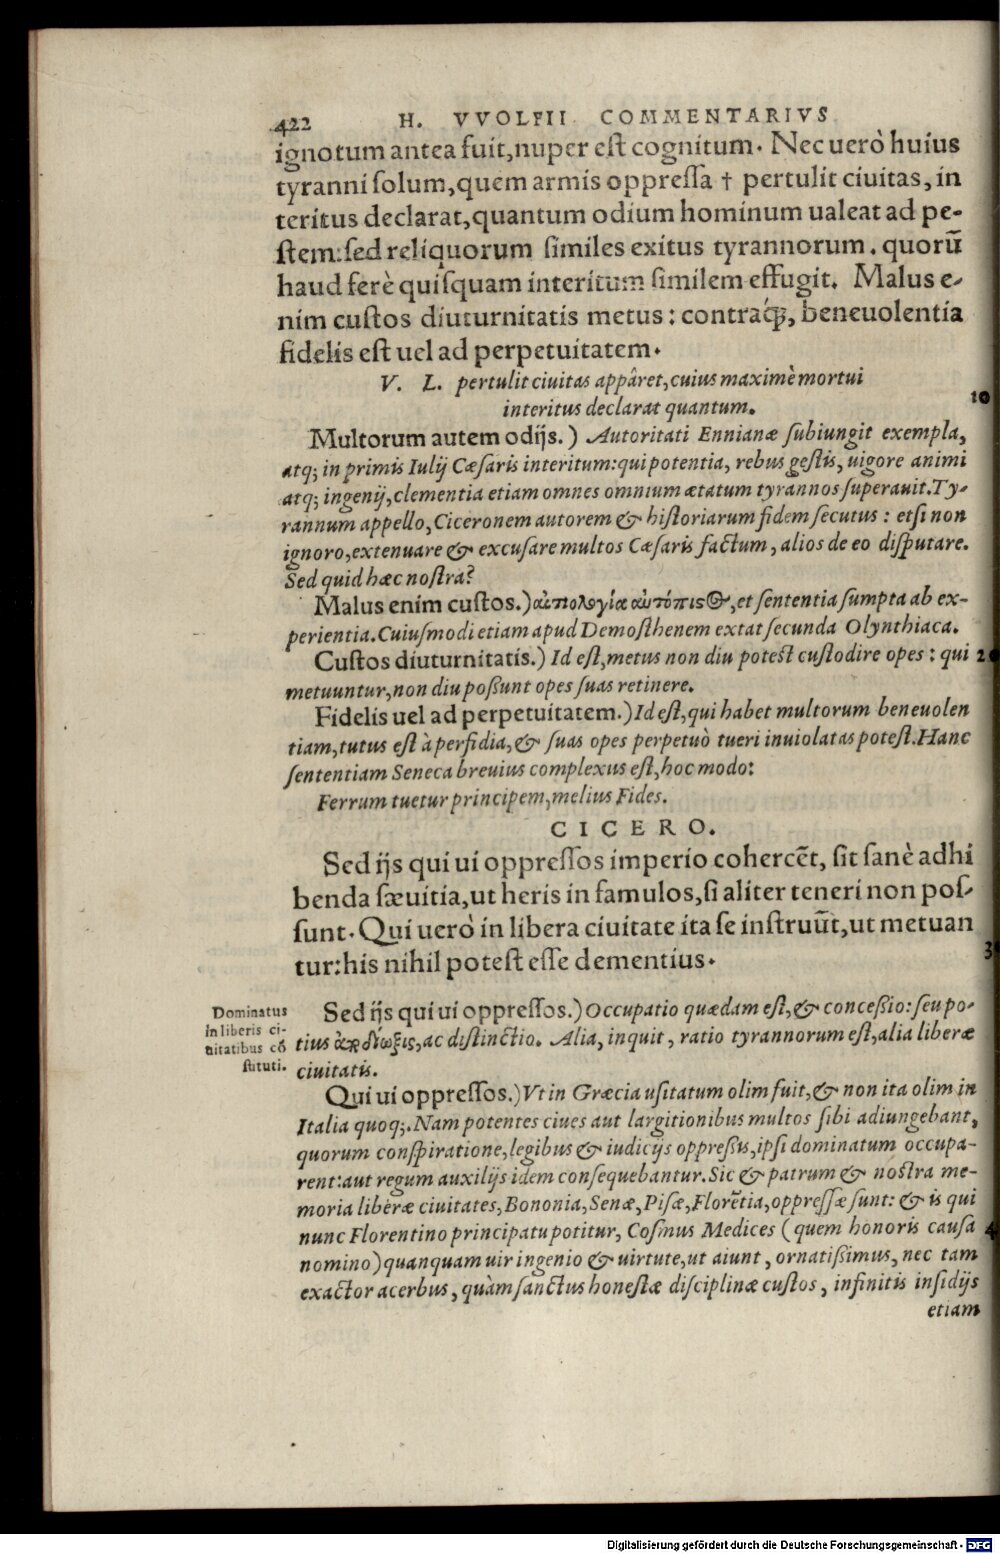 422 H. VVOLFII COMMENTARIVS
ignotum antea fuit, nuper est cognitum. Nec uerò huius
tyranni solum, quem armis oppressa † pertulit ciuitas, in
teritus declarat, quantum odium hominum ualeat ad pe-
stem: sed reliquorum similes exitus tyrannorum. quorū
haud ferè quisquam interitum similem effugit. Malus e-
nim custos diuturnitatis metus: contraq́;, beneuolentia
fidelis est uel ad perpetuitatem.
V. L. pertulit ciuitas appâret, cuius maximè mortui
interitus declarat quantum.
10
Multorum autem odijs.) Autoritati Ennianæ subiungit exempla,
atq; in primis Iulij Cæsaris interitum: qui potentia, rebus gestis, uigore animi
atq; ingenij, clementia etiam omnes omnium ætatum tyrannos superauit. Ty-
rannum appello, Ciceronem autorem & historiarum fidem secutus: etsi non
ignoro, extenuare & excusare multos Cæsaris factum, alios de eo disputare.
Sed quid hæc nostra?
Malus enim custos.) αἰτιολογία ἀυτόπιςος, et sententia sumpta ab ex-
perientia. Cuiusmodi etiam apud Demosthenem extat secunda Olynthiaca.
Custos diuturnitatis.) Id est, metus non diu potest custodire opes: qui
metuuntur, non diu poßunt opes suas retinere.
Fidelis uel ad perpetuitatem.) Id est, qui habet multorum beneuolen
tiam, tutus est à perfidia, & suas opes perpetuò tueri inuiolatas potest. Hanc
sententiam Seneca breuius complexus est, hoc modo:
Ferrum tuetur principem, melius Fides.
CICERO.
Sed ijs qui ui oppressos imperio cohercēt, sit sanè adhi
benda sæuitia, ut heris in famulos, si aliter teneri non pos-
sunt. Qui uerò in libera ciuitate ita se instruūt, ut metuan
tur: his nihil potest esse dementius.
Dominatus
in liberis ci-
uitatibus cō
stituti.
Sed ijs qui ui oppressos.) Occupatio quædam est, & conceßio: seu po-
tius παραδιόρθωσις, ac distinctio. Alia, inquit, ratio tyrannorum est, alia liberæ
ciuitatis.
Qui ui oppressos.) Vt in Græcia usitatum olim fuit, & non ita olim in
Italia quoq;. Nam potentes ciues aut largitionibus multos sibi adiungebant,
quorum conspiratione, legibus & iudicijs oppreßis, ipsi dominatum occupa-
rent: aut regum auxilijs idem consequebantur. Sic & patrum & nostra me-
moria liberæ ciuitates, Bononia, Senæ, Pisæ, Florētia, oppressæ sunt: & is qui
nunc Florentino principatu potitur, Cosmus Medices (quem honoris causa
nomino) quanquam uir ingenio & uirtute, ut aiunt, ornatißimus, nec tam
exactor acerbus, quàm sanctus honestæ disciplinæ custos, infinitis insidijs
etiam
Digitalisierung gefördert durch die Deutsche Forschungsgemeinschaft - DFG